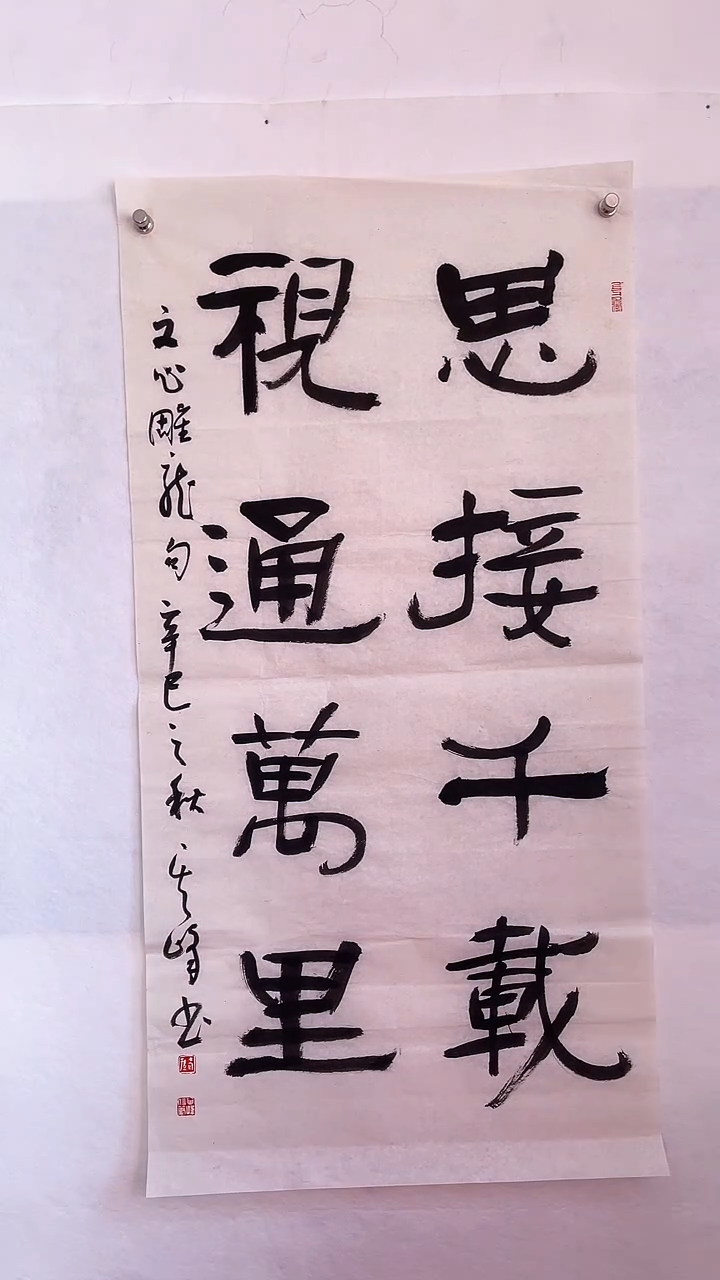 思接千載
視通萬里
文心雕龍句 辛巳之秋 峰书